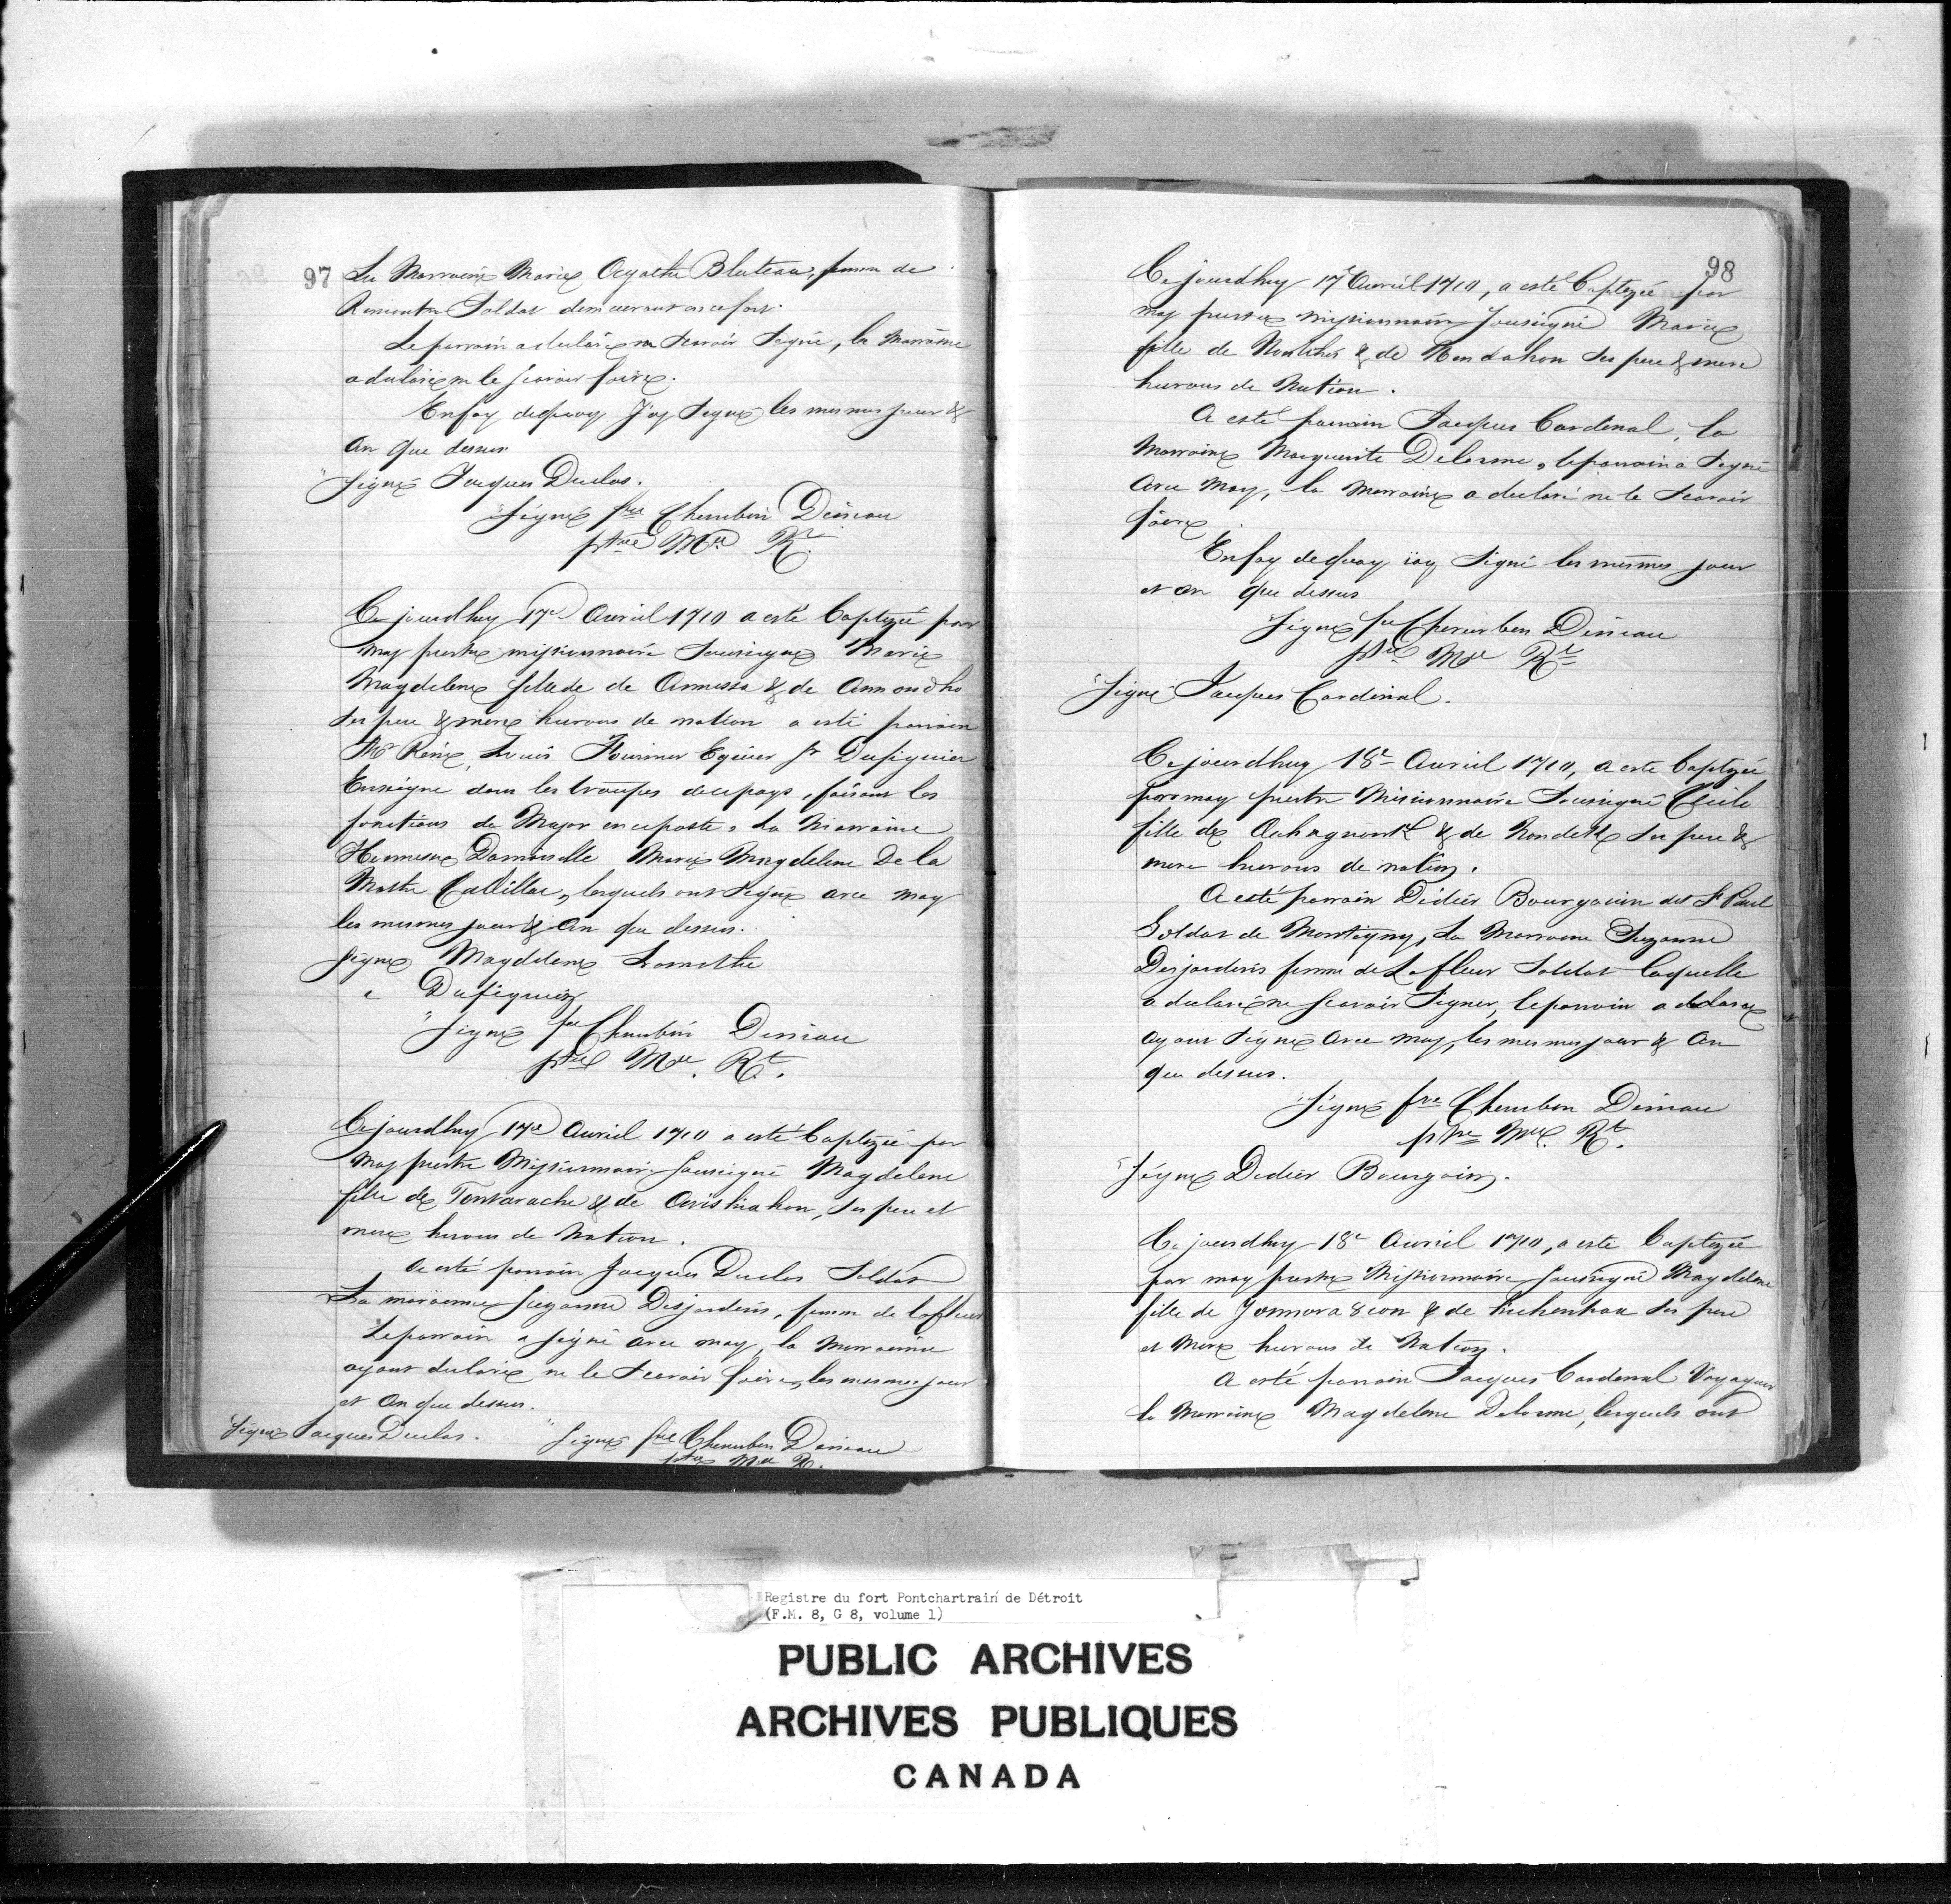 97
La Marraine Marie Agathe Bluteau, femme de
Soldat demeurant en ce fort.
Le parrain a declaré ne scavoir signé, la marraine
a declaré ne le scavoir faire.
En foy de quoy J'ay signé les mesmes jour &
an que dessus
Signé Jacques Duclos.
Signé fre Cherubin Deniau
ptre Mre Rt.
Ce jourdhuy 17e Avril 1710 a esté baptizée par
moy prestre missionnaire Soussigné Marie
Magdelene fille de de Annessa & de
ses pere & mere hurons de nation a esté parrain
Mr René Louis Fournier Equier Sr Dufiguier
Enseigne dans les troupes de ce pays, faisant les
fonctions de Major en ce poste, La Marraine
Damoiselle Marie Magdelene De la
Mothe Cadillac, lesquels ont signé avec moy
les mesmes jour & an que dessus.
Signé Magdelene Lamothe
" Dufiguier
Signé fre Cherubin Deniau
ptre Mre. Rt.
Ce jourdhuy 17e Avril 1710 a esté baptizée par
moy prestre Missionnaire soussigné Magdelene
fille de Tontarache & de Aristiahon, ses pere et
mere hurons de Nation.
a esté parrain Jacques Duclos Soldat
La marainne Suzanne Desjardins, femme de lafleur
Le parrain a signé avec moy, la marrainne
ayant declaré ne le scavoir faire, les mesmes jour
et an que dessus.
Signé Jacques Duclos. Signé fre Cherubin Deniau
ptre Mre R.
98
Ce jourdhuy 17e Avril 1710, a esté baptizée par
moy prestre missionnaire soussigné Marie
fille de & de ses pere & mere
hurons de Nation.
A esté parrain Jacques Cardinal, la
Marraine Marguerite Delorme, le parrain a signé
avec moy, la marraine a declaré ne le scavoir
faire
En foy de quoy iay signé les mesmes jour
et an que dessus
Signé fre Cherubin Deniau
ptre Mre Rt
Signé Jacques Cardinal.
Ce jourdhuy 18e Avril 1710, a esté baptizée
par moy prestre Missionnaire Soussigné Cecile
fille de & de ses pere &
mere hurons de nation.
A esté parrain Didier Bourgouin dit St Paul
Soldat de Montigny, La Marraine Suzanne
Desjardins femme de Lafleur Soldat laquelle
a declaré ne scavoir signer, le parrain a declaré
ayant signé avec moy, les mesmes jour & an
que dessus.
Signé fre Cherubin Deniau
ptre Mre. Rt.
Signé Didier Bourgoin.
Ce jourdhuy 18e Avril 1710, a esté baptizée
par moy prestre Missionnaire soussigné Magdelene
fille de & de ses pere
et mere hurons de Nation.
A esté parrain Jacques Cardinal Voyageur
la Marraine Magdelene Delorme, lesquels ont
Registre du fort Pontchartrain de Détroit
(F.M. 8, G 8, volume 1)
PUBLIC ARCHIVES
ARCHIVES PUBLIQUES
CANADA